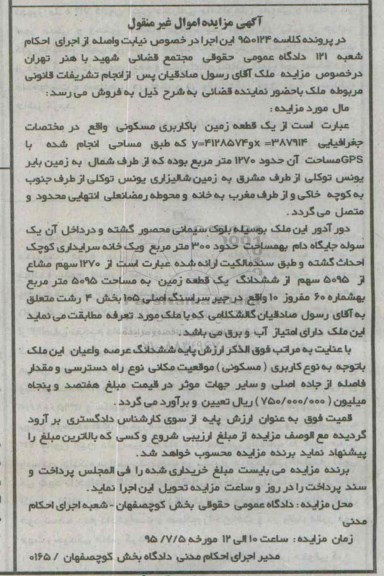 آگهی مزایده اموال غیر منقول
در پرونده کلاسه ۹۵۰۱۲۴ این اجرا در خصوص نیابت واصله از اجرای احکام
شعبه ۱۲۱ دادگاه عمومی حقوقی مجتمع قضائی شهید با هنر تهران
درخصوص مزایده ملک آقای رسول صادقیان پس ازانجام تشریفات قانونی
مربوطه ملک باحضور نماینده قضائی به شرح ذیل به فروش می رسد:
مال مورد مزایده:
عبارت است از یک قطعه زمین باکاربری مسکونی واقع در مختصات
جغرافیایی y=۴۱۲۸۵۷۴و x=۳۸۷۹۱۴ که طبق مساحی انجام شده با
GPSمساحت آن حدود ۱۲۷۰ متر مربع بوده که از طرف شمال به زمین بایر
یونس توکلی از طرف مشرق به زمین شالیزاری یونس توکلی از طرف جنوب
به کوچه خاکی و از طرف مغرب به خانه و محوطه رمضانعلی انتهایی محدود و
متصل می گردد.
دور آدور این ملک بوسیله بلوک سیمانی محصور گشته و درداخل آن یک
سوله جایگاه دام بهمساحت حدود ۳۰۰ متر مربع ویک خانه سرایداری کوچک
احداث گشته و طبق سندمالکیت ارائه شده عبارت است از ۱۲۷۰ سهم مشاع
از ۵۰۹۵ سهم از ششدانگ یک قطعه زمین به مساحت ۵۰۹۵ متر مربع
بهشماره ۶۰ مفروز ۱۰ واقع در جیر سراسنگ اصلی ۱۰۵ بخش ۴ رشت متعلق
به آقای رسول صادقیان گالشکلامی که با ملک مورد تعرفه مطابقت می نماید
این ملک دارای امتیاز آب و برق می باشد.
با عنایت به مراتب فوق الذکر ارزش پایه ششدانگ عرصه واعیان این ملک
باتوجه به نوع کاربری (مسکونی) موقعیت مکانی نوع راه دسترسی و مقدار
فاصله از جاده اصلی و سایر جهات موثر در قیمت مبلغ هفتصد و پنجاه
میلیون (۷۵۰/۰۰۰/۰۰۰) ریال تعیین و برآورد می گردد.
قمیت فوق به عنوان ارزش پایه از سوی کارشناس دادگستری بر آرود
گردیده مع الوصف مزایده از مبلغ ارزیبی شروع و کسی که بالاترین مبلغ را
پیشنهاد نماید برنده مزایده محسوب خواهد شد.
برنده مزایده می بایست مبلغ خریداری شده را فی المجلس پرداخت و
سند پرداخت را در روز و ساعت مزایده تحویل این اجرا نماید.
محل مزایده: دادگاه عمومی حقوقی بخش کوچصفهان - شعبه اجرای احکام
مدنی
زمان مزایده: ساعت ۱۰ الی ۱۲ مورخه ۹۵/۷/۵
مدیر اجرای احکام مدنی دادگاه بخش کوچصفهان / ۰۱۶۵